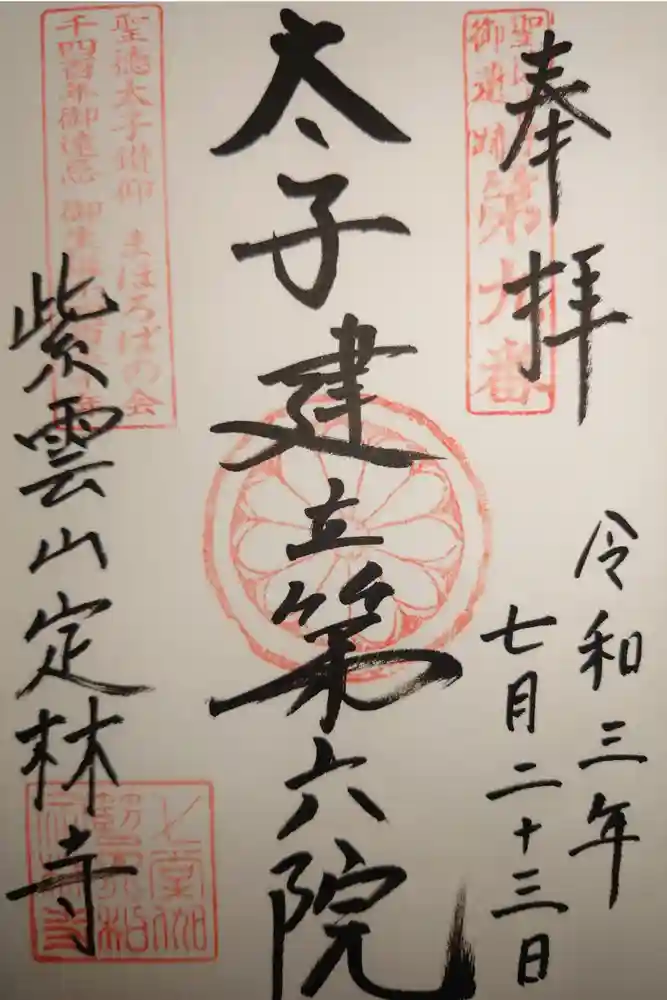 奉拝
令和三年
七月二十三日
第九番
太子建立第六院
聖徳太子讃仰 まほろばの会
千四百年御遠忌
紫雲山定林寺